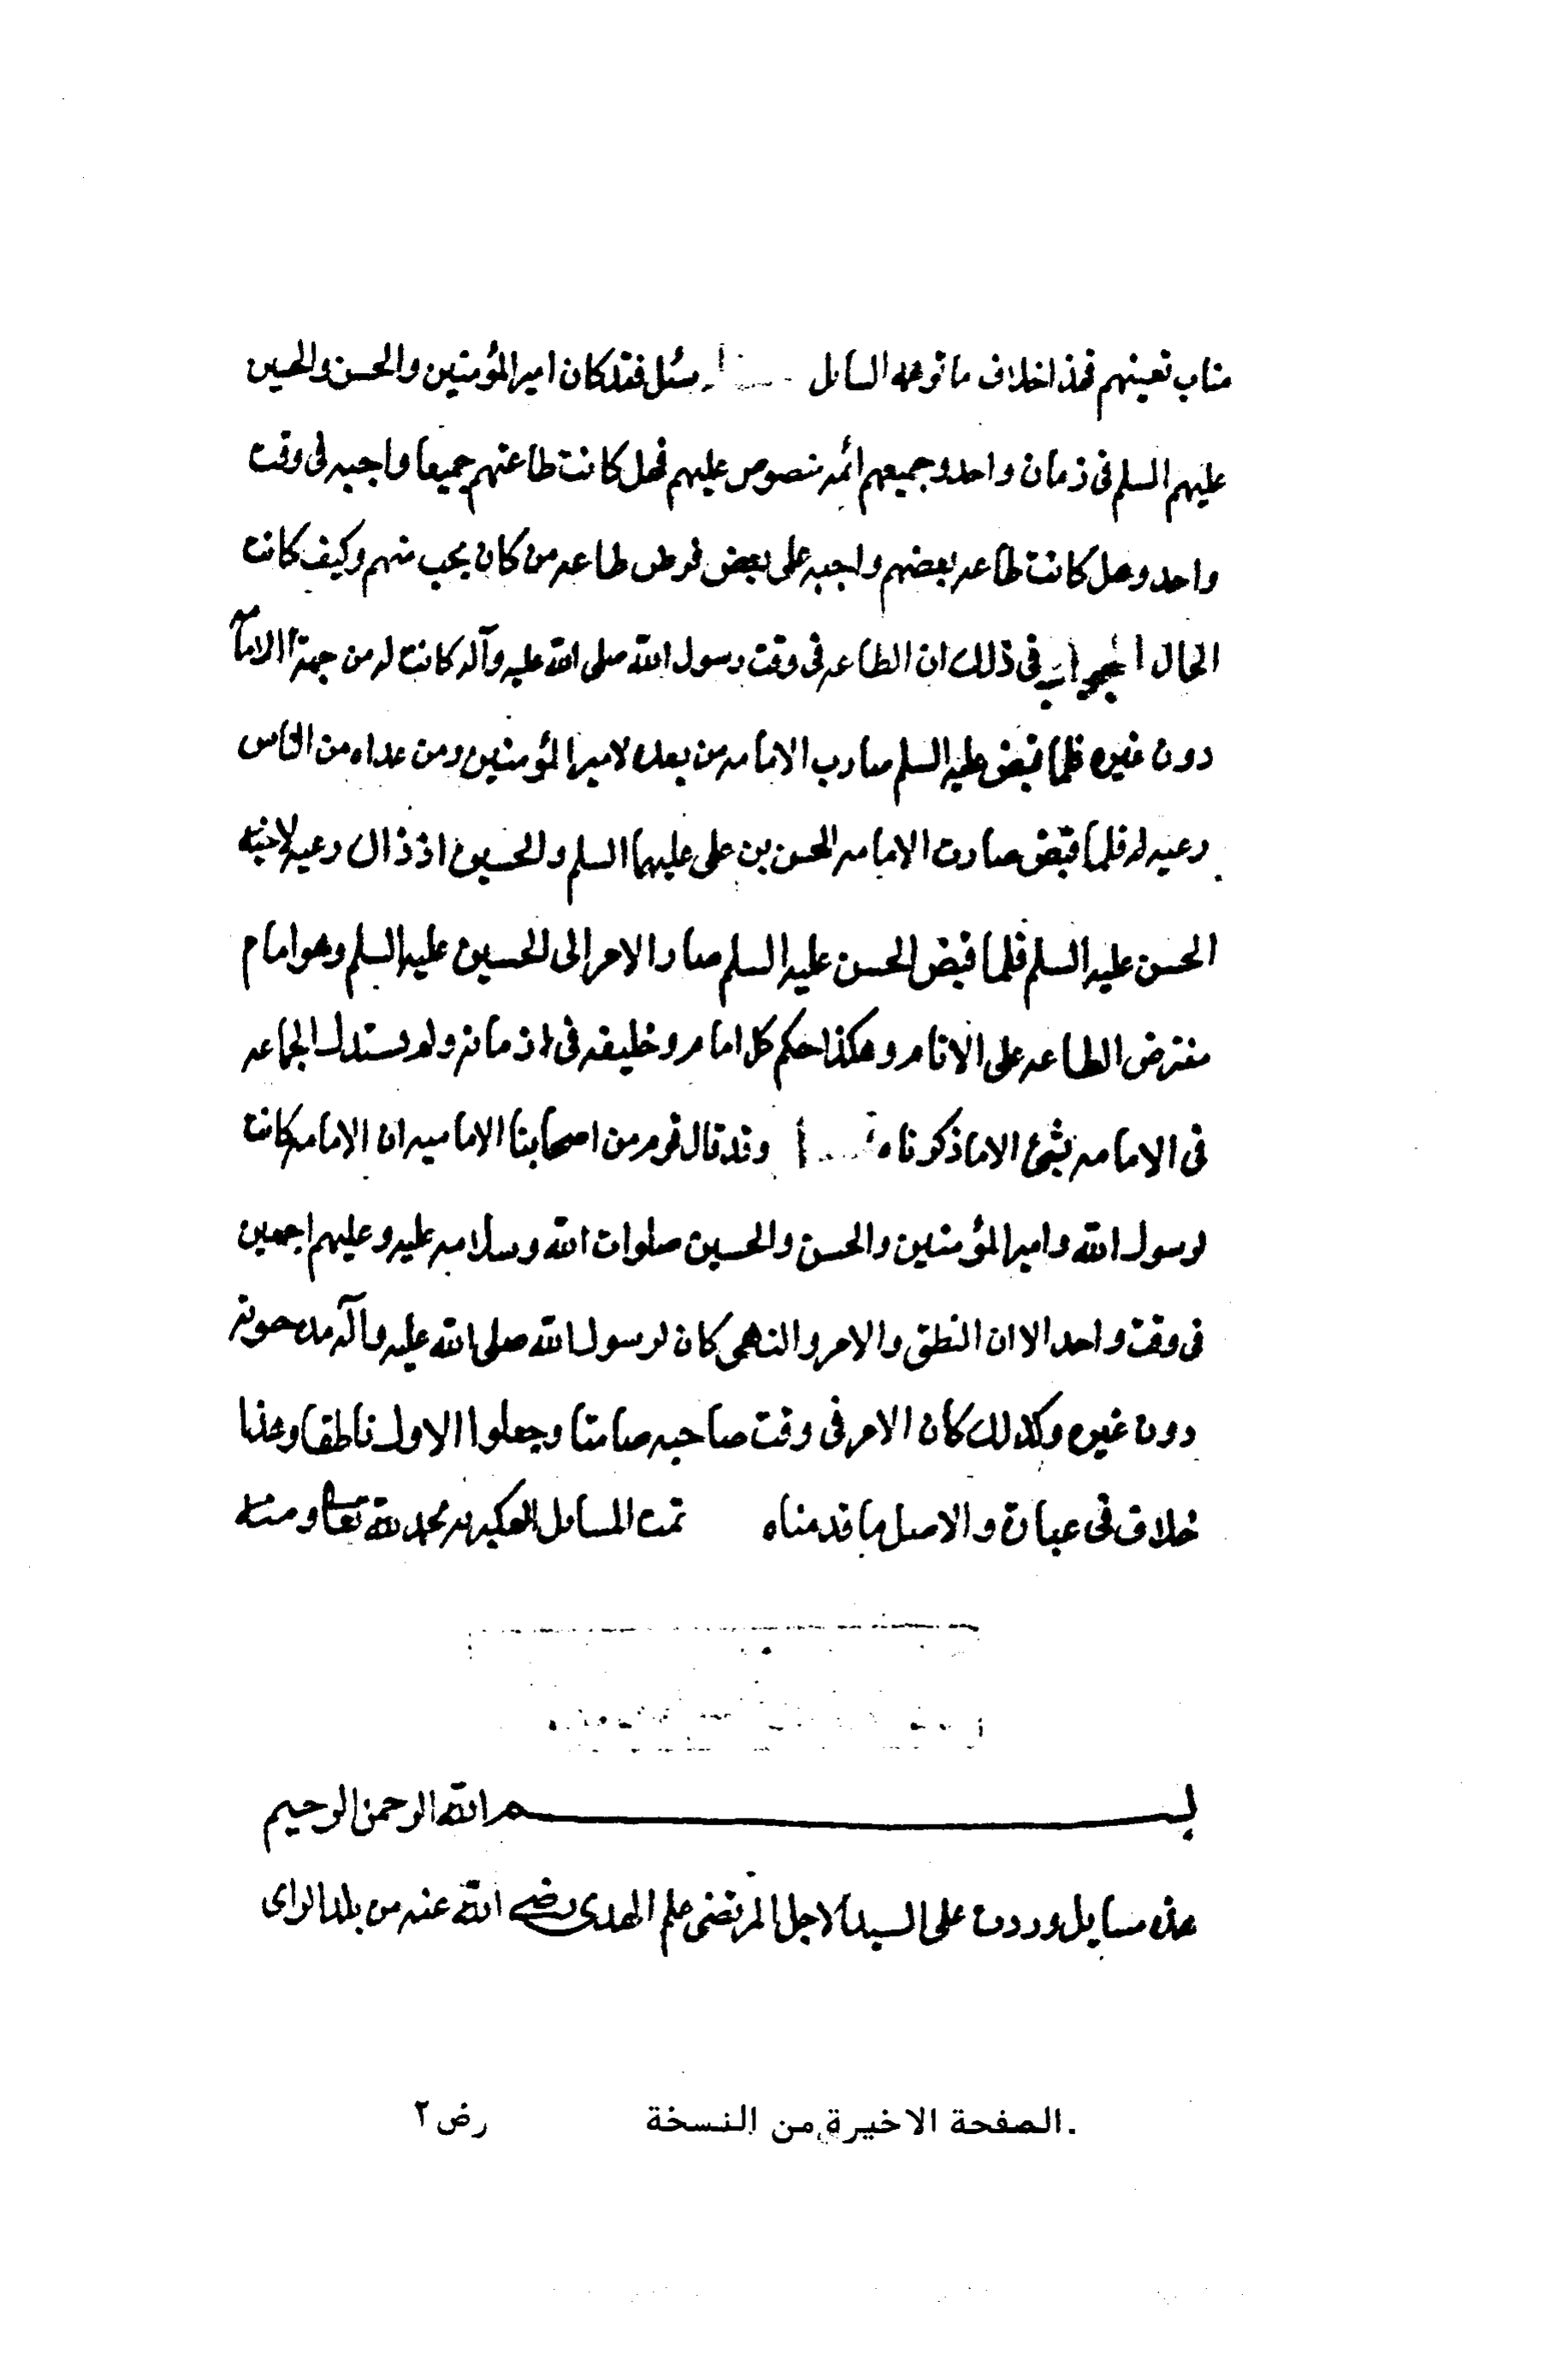 مناب تعينهم فهذا خلاف ما توهمه السايل وسئل فقد كان امير المؤمنين والحسن والحسين
عليهم السلم فى زمان واحد وجميعهم ائمه منصوص عليهم فهل كانت طاعتهم جميعا واجبه فى وقت
واحد وهل كانت طاعه بعضهم واجبه على بعض فرض طاعه من كان يجب منهم وكيف كانت
الحال الجواب فى ذلك ان الطاعه فى وقت رسول الله صلى الله عليه وآله كانت له من جهة الامامه
دون غيره فلما قبض عليه السلم صارت الامامه من بعده لامير المؤمنين ومن عداه من الناس
رعيه له فلما قبض صارت الامامه الحسن بن على عليهما السلم والحسين اذ ذاك رعيه لاخيه
الحسن عليه السلم فلما قبض الحسن عليه السلم صار الامر الى الحسين عليه السلم وهو امام
مفترض الطاعه على الانام وهكذا حكم كل امام وخليفه فى ازمانه ولم يستدل الجماعه
فى الامامه بشئ الا ما ذكرناه وقد قال قوم من اصحابنا الاماميه ان الامامه كانت
لرسول الله وامير المؤمنين والحسن والحسين صلوات الله وسلامه عليه وعليهم اجمعين
فى وقت واحد الا ان النطق والامر والنهى كان لرسول الله صلى الله عليه وآله مده حيوته
دون غيره وكذلك كان الامر فى وقت صاحبه صامتا وجعلوا الاول ناطقا وهذا
خلاف فى عبارة والاصل ما قدمناه تمت المسايل العكبريه بحمد الله تعالى ومنه
بسم الله الرحمن الرحيم
هذه مسايل وردت على السيد الاجل المرتضى علم الهدى رضى الله عنه من بلد الراى
الصفحة الاخيرة من النسخة رض ٢